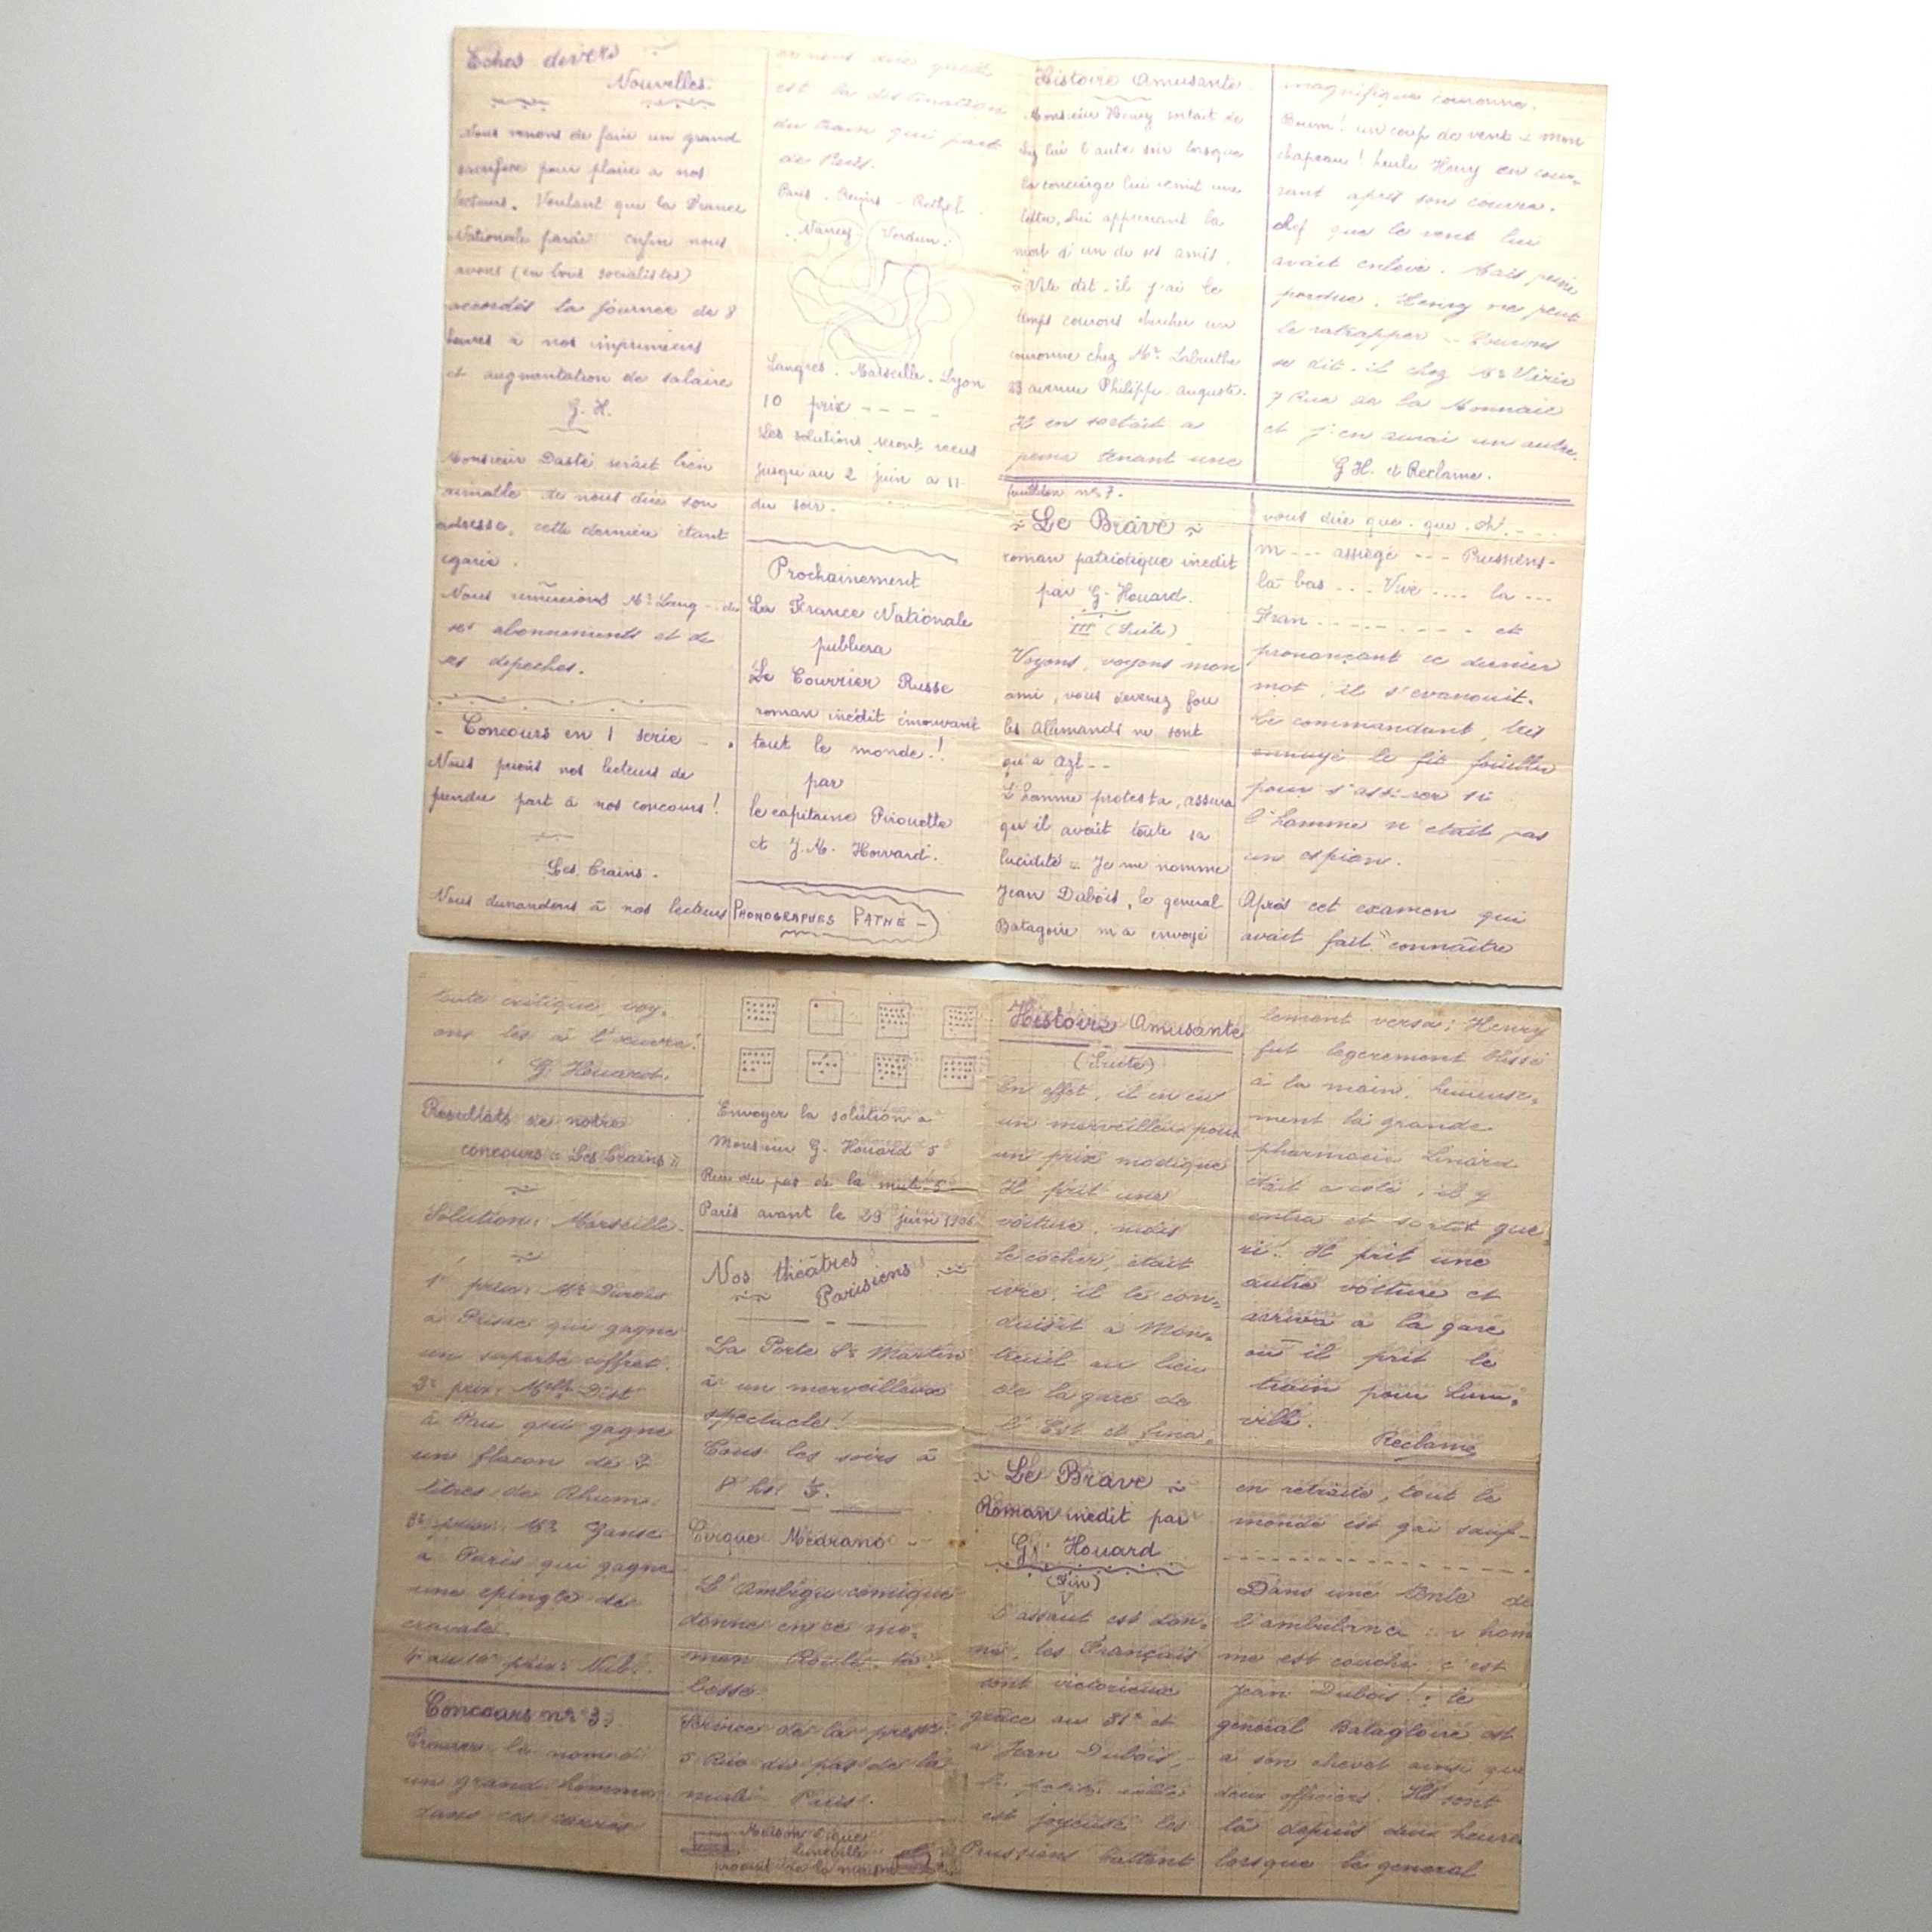 Echos divers
Nouvelles.
Nous venons de faire un grand
sacrifice pour plaire à nos
lecteurs. Voulant que la France
Nationale enfin nous
avons (en bons socialistes)
accordés la journée de 8
heures à nos imprimeurs
et augmentation de salaire
G. H.
Monsieur Dasté serait bien
aimable de nous dire son
adresse, cette dernière étant
égarée.
Nous remercions Mr Lang -- de
ses abonnements et de
ses dépeches.
- Concours en 1 serie -
Nous prions nos lecteurs de
prendre part à nos concours!
Les Trains.
Nous demandons à nos lecteurs
de nous dire quelle
est la destination
du train qui part
de Paris.
Paris - Reims - Rethel.
Nancy Verdun.
Langres. Marseille. Lyon
10 prix - - - -
Les solutions seront recues
jusqu au 2 juin a 11
du soir.
Prochainement
La France Nationale
publiera
Le Courrier Russe
roman inédit émouvant
tout le monde.!
par
le capitaine Pirouette
et J. M. Howard.
PHONOGRAPHES PATHÉ -
Histoire Amusante
Monsieur Henry sortait de
chez lui l'autre soir lorsque
la concierge lui remit une
lettre, lui apprenant la
mort d'un de ses amis.
Vite dit-il j'ai le
temps courons chercher une
couronne chez Mr. Labruthe
23 avenue Philippe auguste.
Il en sortait a
peine tenant une
magnifique couronne.
Boum! un coup de vent = mon
chapeau! hurle Henry en cour=
rant après son couvre.
chef que le vent lui
avait enlevé. Mais peine
perdue. Henry ne peut
le ratrapper = Courons
se dit-il chez Mr Vérié
7 Rue de la Monnaie
et j'en aurai un autre.
G H. et Reclame.
feuilleton no 7.
Le Brave
roman patriotique inedit
par G. Houard.
III (Suite)
Voyons, voyons mon
ami, vous devenez fou
les Allemands ne sont
qu'a Azl--
L'homme protesta, assura
qu'il avait toute sa
lucidité = Je me nomme
Jean Dubois, le general
Batagoire m'a envoyé
vous dire que. que. oh! ---
m --- assiegé --- Prussiens-
là-bas ... Vive .... la ---
Fran - - - - - - - - et
prononçant ce dernier
mot, il s'evanouit.
Le commandant, très
ennuyé le fit fouiller
pour s'assurer si
l'homme n'etait pas
un espion.
Après cet examen qui
avait fait connaître
toute critique, voy=
ons les à l'œuvre!
G. Houard.
Résultats de notre
concours "Les Trains"
Solution: Marseille.
1er prix: Mr
à qui gagne
un superbe coffret.
2e prix: Melle
à Pau qui gagne
un flacon de 2
litres de Rhum.
3e prix: Mr
a Paris qui gagne
une epingle de
cravate.
4e au 10e prix:
Concours no 3
Trouver le nom d'
un grand homme
dans ces carrés
Envoyer la solution a
Monsieur G. Houard 5
Rue du pas de la mule 5
Paris avant le 29 juin 1906
Nos théâtres
Parisiens
La Porte St Martin
à un merveilleux
spectacle!
Tous les soirs à
8 hs
Cirque Médrano --
L'Ambigu comique
donne en ce mo=
men Roule-ta-
bosse
Service de la presse
5 Rue du pas de la
mule Paris.
Maison
Luneville
produit de la maison
Histoire Amusante
(Suite)
En effet, il en eut
un merveilleux pour
un prix modique
Il prit une
voiture, mais
le cocher, était
ivre, il le con=
duisit a Mon=
treuil au lieu
de la gare de
l'Est et fina=
lement versa; Henry
fut legerement blessé
à la main, heureuse=
ment la grande
pharmacie Linard
était a coté, il y
entra et sortit gue=
ri. Il prit une
autre voiture et
arriva a la gare
où il prit le
train pour Luné=
ville.
Reclame
Le Brave
Roman inedit par
G. Houard
(Fin)
V
L'assaut est don=
né, les Français
sont victorieux
grace au 81e et
a Jean Dubois,
la petite ville
est joyeuse les
Prussiens battent
en retraite, tout le
monde est gai sauf-
Dans une tente de
l'ambulance hom
me est couché, c'est
Jean Dubois!, le
general Batagloire est
a son chevet ainsi que
deux officiers. Ils sont
là depuis deux heures
lorsque le general